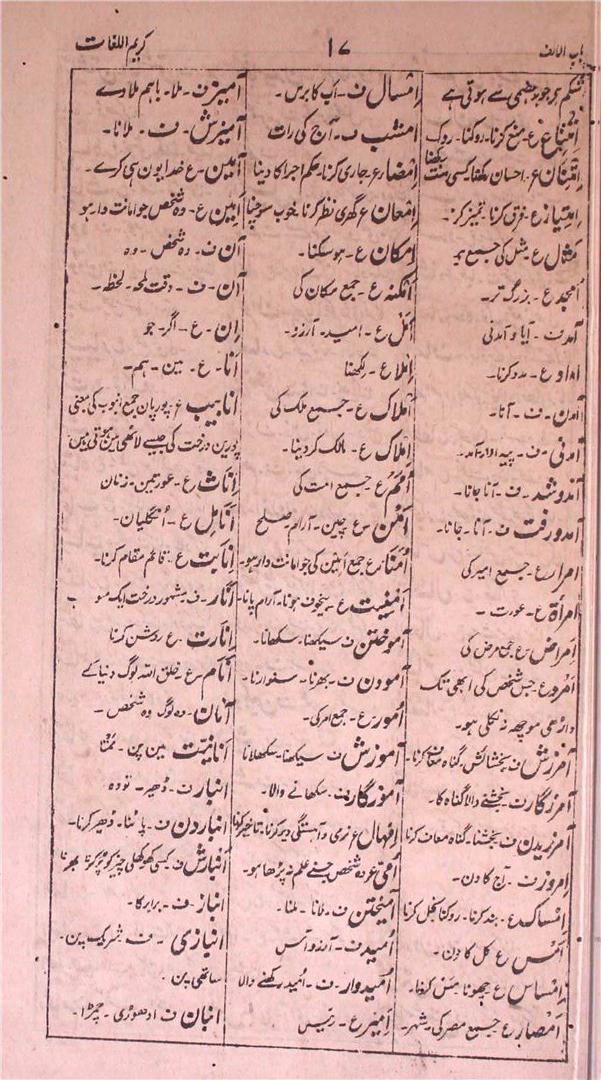 باب الالف
۱۷
کریم اللغات
شکم ہر جو بدہضمی سے ہوتی ہے
اِمْتِناع ع۔ منع کرنا۔ روکنا۔ روک
اِمْتِنان ع۔ احسان رکھنا کیسی منت رکھنا
اِمتِیاز ع۔ فرق کرنا۔ تمیز کرنا۔
اَمثال ع مثل کی جمع ہے
اَمجد ع۔ بزرگ تر۔
آمد ف۔ آیا و آمدنی
امداد ع۔ مدد کرنا۔
آمدن۔ ف۔ آنا۔
آمدنی۔ ف۔ پیداوار آمد۔
آمدوشد۔ ف۔ آنا جانا۔
آمدورفت ف۔ آنا۔ جانا۔
امرار ع۔ جمع امیر کی
امرأة ع۔ عورت۔
اَمراض۔ ع جمع مرض کی
اَمرد ع۔ جس شخص کی ابھی تک
داڑھی موچھ نہ نکلی ہو۔
آمرزش ف بخشائش۔ گناہ معاف کرنا۔
آمرزگار ف بخشنے والا گناہ کا۔
آمرزیدن ف بخشنا۔ گناہ معاف کرنا
اِمروز ف۔ آج کا دن۔
اِمْساک ع۔ بند کرنا۔ روکنا بخل کرنا
اَمْس ع کل کا دن۔
اِمساس ع چھونا مس کرنا۔
اَمْصار ع جمع مصر کی۔ شہر۔
اِمْسال ف۔ اب کا برس۔
اِمْشب ف۔ آج کی رات
اِمضار ع جاری کرنا۔ حکم اجرا کا دینا
اِمْعان ع گہری نظر کرنا۔ خوب سوچنا
اِمکان ع۔ ہو سکنا۔
اَمکنہ ع۔ جمع مکان کی
اَمَل ع۔ امید۔ آرزو۔
اِملا ع۔ لکھنا
اَملاک ع۔ جمع ملک کی
اِملاک ع۔ مالک کر دینا۔
اُمَم ع۔ جمع امت کی
اَمْن۔ ع چین۔ آرام۔ صلح
اُمَنَا ر ع جمع امین کی جو امانت دار ہو۔
اَمنیت ع۔ بیخوف ہونا۔ آرام پانا۔
آموختن ف سیکھنا۔ سکھانا۔
آمودن ف۔ بھرنا۔ سنوارنا۔
اُمور۔ ع۔ جمع امر کی۔
آموزش ف سیکھنا۔ سکھلانا
آموزگار ف۔ سکھانے والا۔
اِمْہال ع نرمی و آہستگی دیر کرنا۔ تاخیر کرنا
اُمّی ع وہ شخص جسنے علم نہ پڑھا ہو۔
آمیختن ف ملانا۔ ملنا۔
اُمید ف۔ آرزو و آس
اُمیدوار۔ ف۔ اُمید رکھنے والا
اَمِیْر ع۔ رئیس
آمیز ف۔ ملا۔ باہم ملا دے
آمیزش۔ ف۔ ملانا۔
آمین۔ ع خدا یوں ہی کرے۔
اَمِین ع۔ وہ شخص جو امانت دار ہو
آن ف۔ وہ شخص۔ وہ
آن۔ ف۔ وقت لمحہ۔ لحظہ۔
اِن۔ ع۔ اگر۔ جو
اَنَا۔ ع۔ مین۔ ہم۔
اَنابیب ع۔ پوریان جمع انبوب کی بمعنی
پورین درخت کی جیسے لاٹھی مین ہوتی ہین
اِناث ع۔ عورتین۔ زنان
اَنامِل ع۔ اُنگلیان۔
اِنابَت ع۔ قائم مقام کرنا۔
اَنار۔ ف۔ مشہور درخت ایک میوہ
اِنارت۔ ع روشن کرنا
اَنام۔ ع خلق اللہ لوگ دنیا کے
آنان۔ وہ لوگ وہ شخص۔
اَنانیّت مین پن۔ مُنْا
اَنبار ف۔ ڈھیر۔ تودہ
اَنباردن ف۔ پاٹنا۔ ڈھیر کرنا۔
اَنبارش ف کسی کھوکھلی چیز کو پر کرنا۔ بھرنا
انباز۔ ف۔ برابر کا۔
انبازی۔ ف شریک پن۔
ساتھی پن۔
انبان ف ادھوڑی۔ چمڑا۔